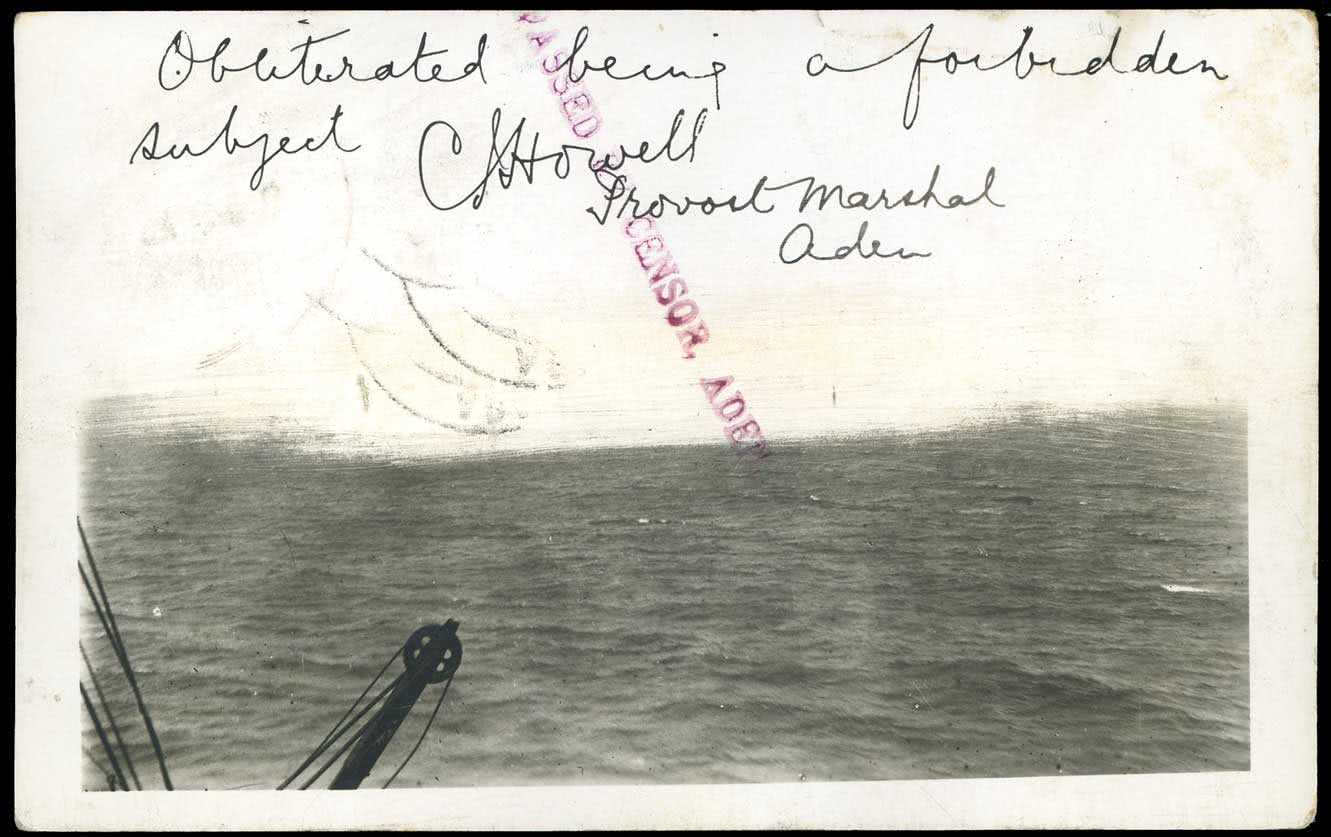 Obliterated being a forbidden
subject CJHowell
Provost Marshal
Aden
PASSED CENSOR, ADEN